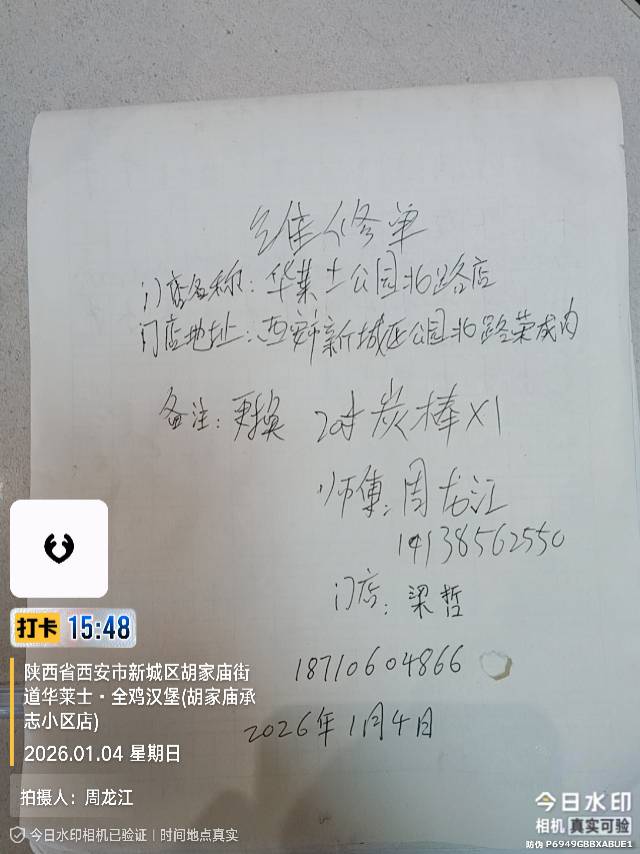 维修单
门店名称：华莱士公园北路店
门店地址：西安新城区公园北路荣成内
备注：更换 20寸炭棒X1
师傅：周龙江
14138562550
门店：梁哲
18710604866
2026年1月4日
打卡 15:48
陕西省西安市新城区胡家庙街
道华莱士·全鸡汉堡(胡家庙承
志小区店)
2026.01.04 星期日
拍摄人：周龙江
今日水印相机已验证｜时间地点真实
今日水印
相机 真实可验
防伪 P6949GBBXABUE1